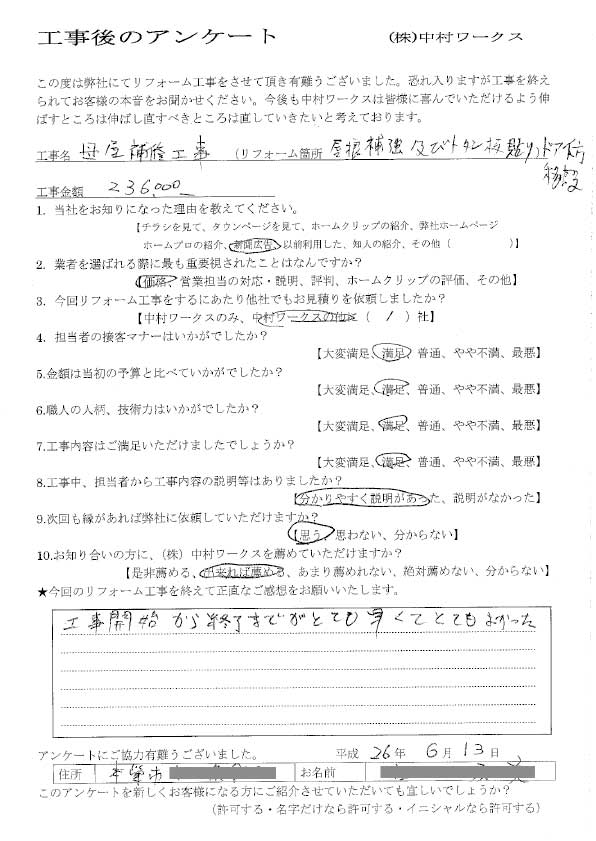 工事後のアンケート　(株)中村ワークス
この度は弊社にてリフォーム工事をさせて頂き有難うございました。恐れ入りますが工事を終え
られてお客様の本音をお聞かせください。今後も中村ワークスは皆様に喜んでいただけるよう伸
ばすところは伸ばし直すべきところは直していきたいと考えております。
工事名　母屋補修工事　(リフォーム箇所　屋根補強及びトタン板貼り、ドア
移設
工事金額　236000
1. 当社をお知りになった理由を教えてください。
【チラシを見て、タウンページを見て、ホームクリップの紹介、弊社ホームページ
ホームプロの紹介、新聞広告、以前利用した、知人の紹介、その他（　　）】
2. 業者を選ばれる際に最も重要視されたことはなんですか？
【価格、営業担当の対応・説明、評判、ホームクリップの評価、その他】
3. 今回リフォーム工事をするにあたり他社でもお見積りを依頼しましたか？
【中村ワークスのみ、中村ワークスの他に（ 1 ）社】
4. 担当者の接客マナーはいかがでしたか？
【大変満足、満足、普通、やや不満、最悪】
5.金額は当初の予算と比べていかがでしたか？
【大変満足、満足、普通、やや不満、最悪】
6.職人の人柄、技術力はいかがでしたか？
【大変満足、満足、普通、やや不満、最悪】
7.工事内容はご満足いただけましたでしょうか？
【大変満足、満足、普通、やや不満、最悪】
8.工事中、担当者から工事内容の説明等はありましたか？
【分かりやすく説明があった、説明がなかった】
9.次回も縁があれば弊社に依頼していただけますか？
【思う、思わない、分からない】
10.お知り合いの方に、（株）中村ワークスを薦めていただけますか？
【是非薦める、出来れば薦める、あまり薦めれない、絶対薦めない、分からない】
★今回のリフォーム工事を終えて正直なご感想をお願いいたします。
工事開始から終了までがとても早くてとてもよかった
アンケートにご協力有難うございました。　平成 26年 6月 13日
住所　本巣市　お名前
このアンケートを新しくお客様になる方にご紹介させていただいても宜しいでしょうか？
（許可する・名字だけなら許可する・イニシャルなら許可する）